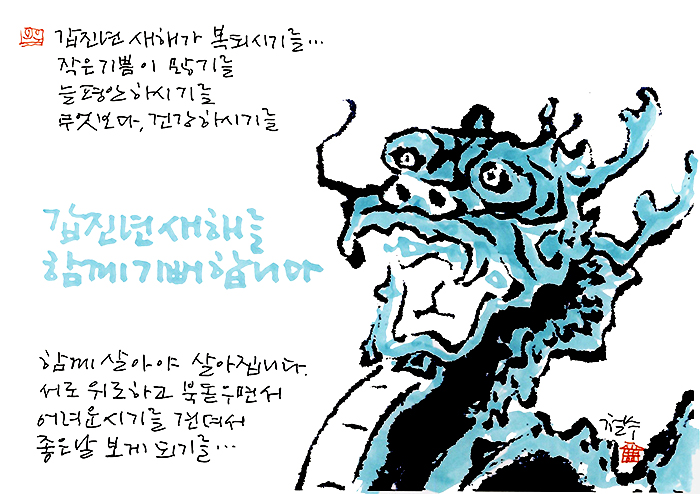 갑진년 새해가 복되시기를...
작은기쁨이 모랑기를
늘평안하시기를
무엇보다, 건강하시기를
갑진년새해를
함께기뻐합니다
함께 살아야 살아집니다.
서로 위로하고 북돋우면서
어려운시기를 견뎌서
좋은날 보게 되기를...
철수